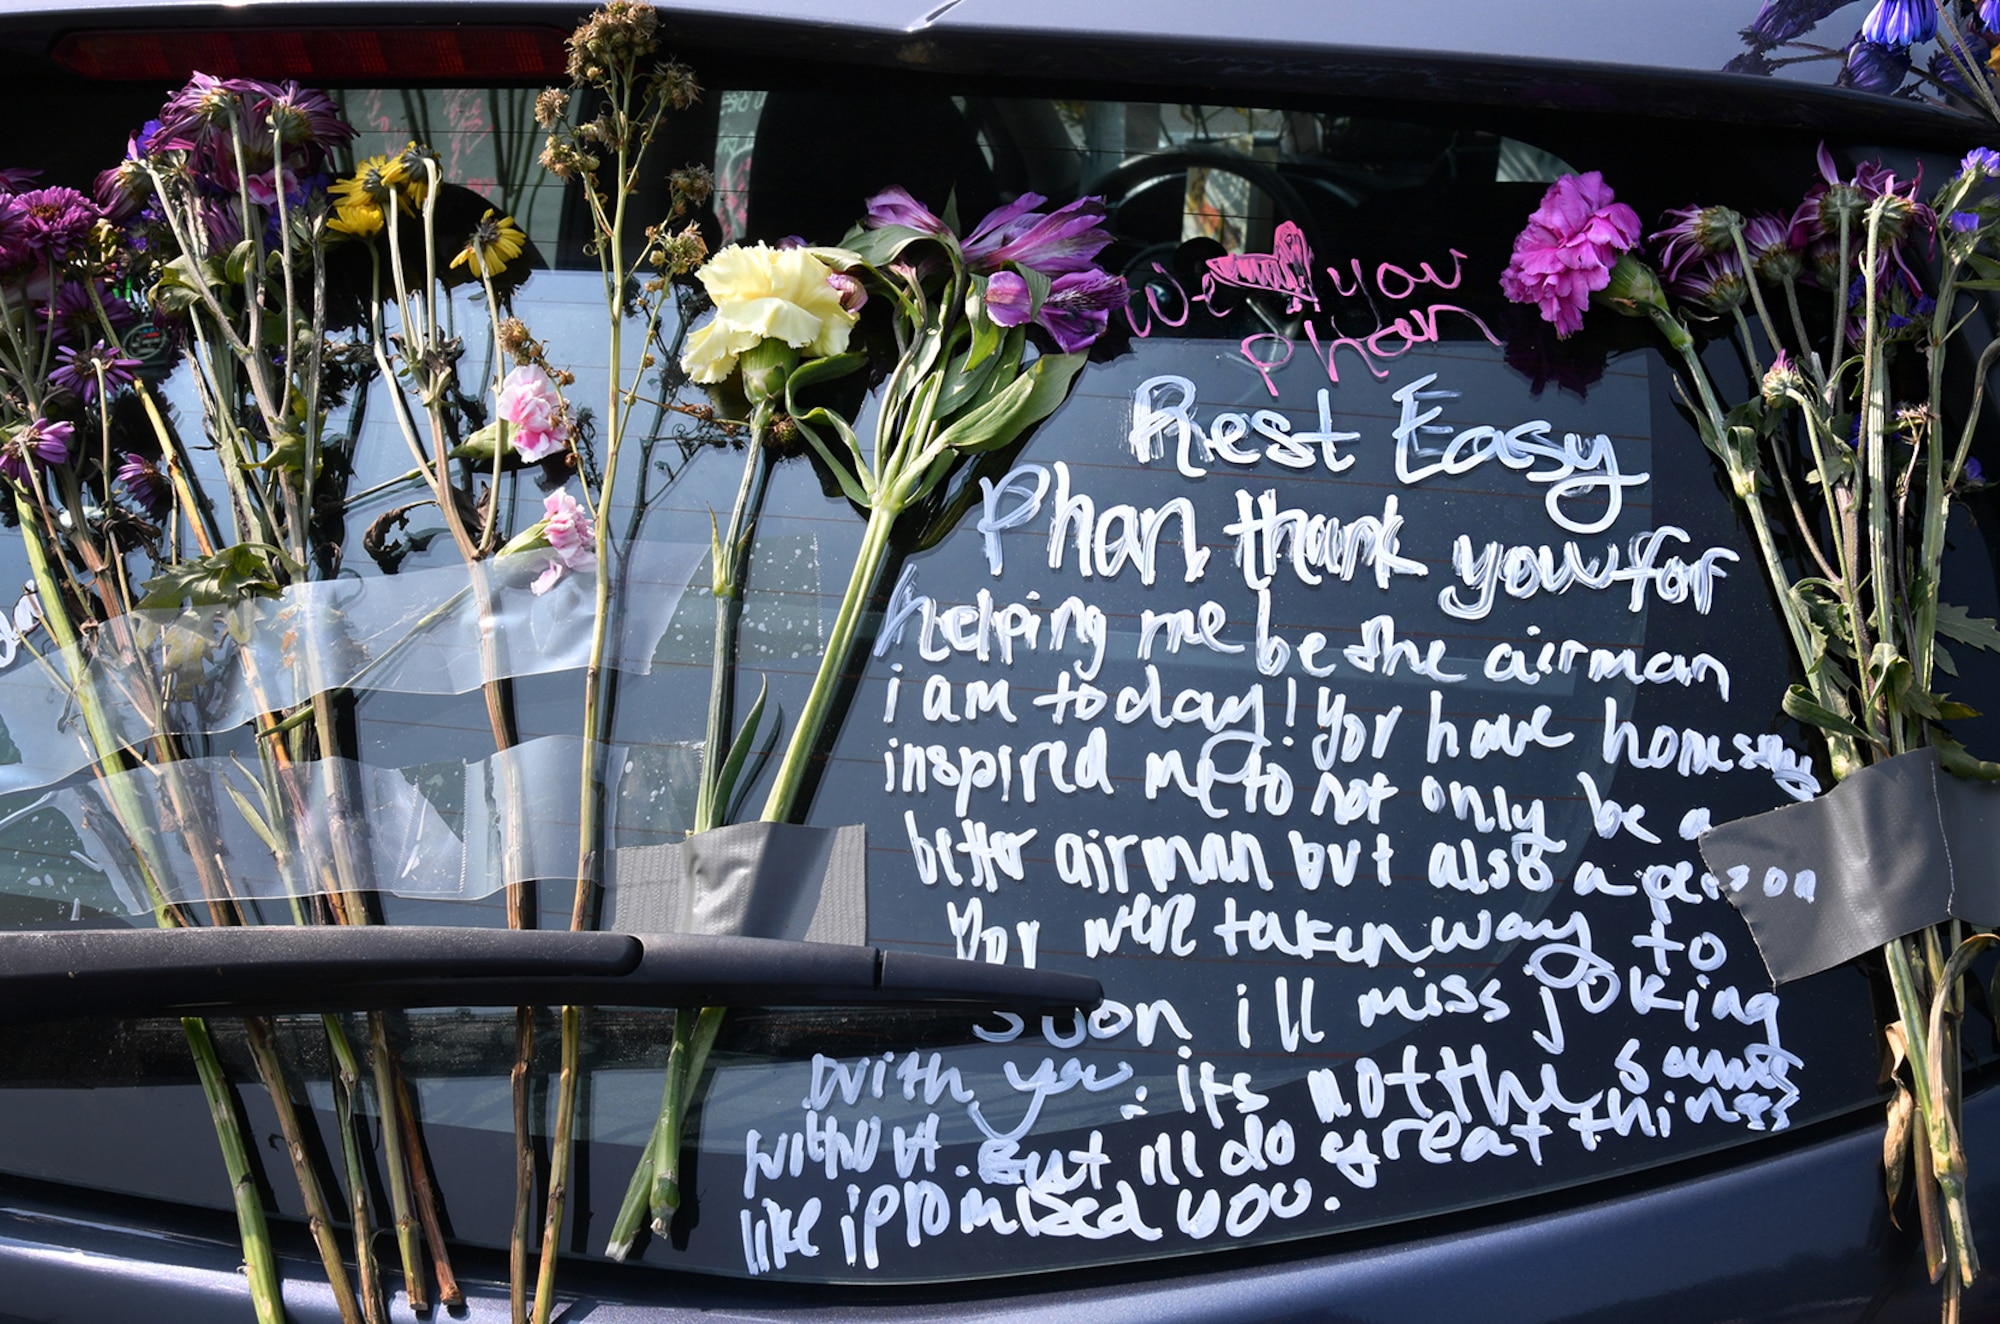 We you
phan
Rest Easy
Phan, thank you for
helping me be the airman
i am today! You have honestly
inspired me to not only be a
better airman but also a person
You were taken way to
soon ill miss joking
with you. its not the same
without. But ill do great things
like i promised you.